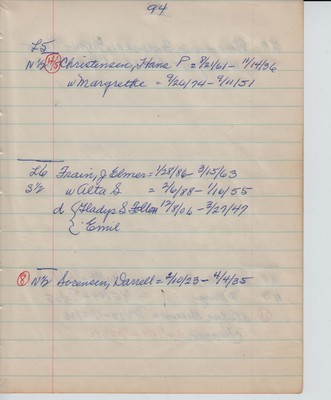 94
L5
N½ Christensen, Hans P = 9/21/61 - 11/14/36
w Margrethe = 9/26/74 - 9/11/51
L6 Frain, J Elmer = 1/28/86 - 3/15/63
S½ w Alta S = 2/6/88 - 1/16/55
d { Gladys S 12/18/06 - 3/27/47
{ Emil
8 N½ Sorensen, Darrell = 2/10/23 - 4/4/35